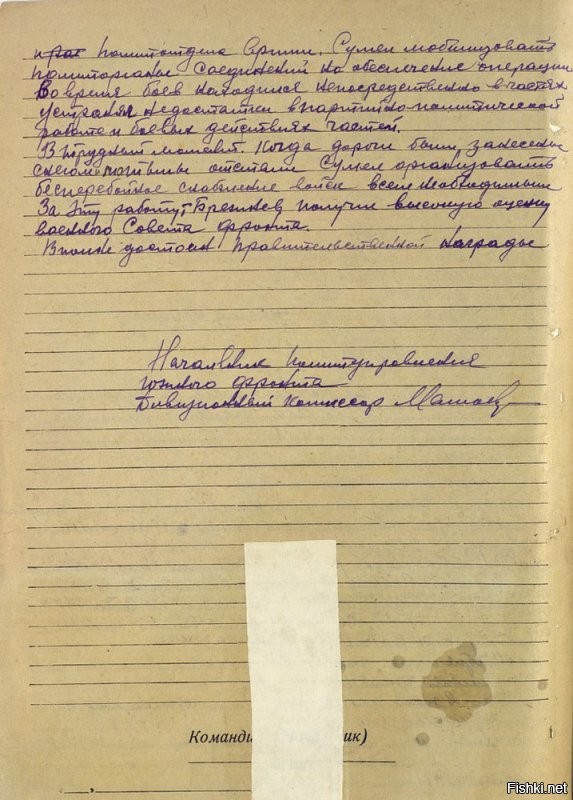 политотдела Армии. Сумел мобилизовать
политорганы соединений на обеспечение операции
Во время боев находился непосредственно в частях
устраняя недостатки в партийно-политической
работе и боевых действиях частей.
В трудный момент. Когда дороги были занесены
снегом отстали Сумел организовать
бесперебойное снабжение войск всем необходимым
За эту работу т. Брежнев получил высокую оценку
военного Совета фронта.
Вполне достоин правительственной награды
Начальник политуправления
южного фронта
Дивизионный комиссар
Команди
ик)
Fishki.net